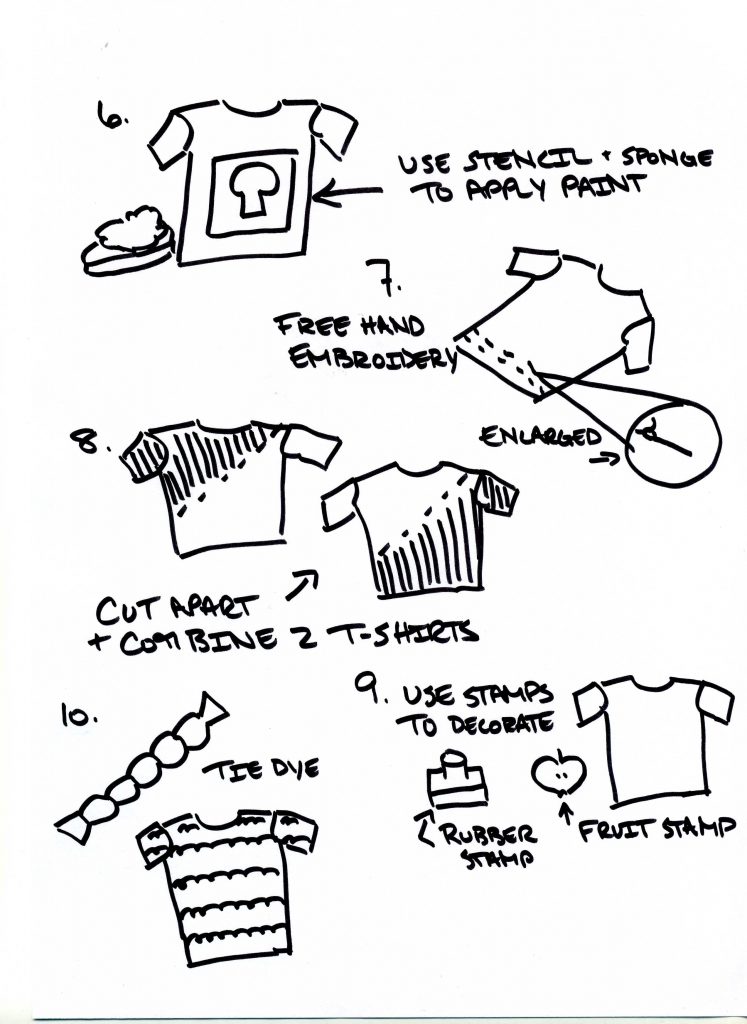 6.
USE STENCIL + SPONGE
TO APPLY PAINT
7.
FREE HAND
EMBROIDERY
ENLARGED
8.
CUT APART
+ COMBINE 2 T-SHIRTS
9. USE STAMPS
TO DECORATE
RUBBER
STAMP
FRUIT STAMP
10.
TIE DYE